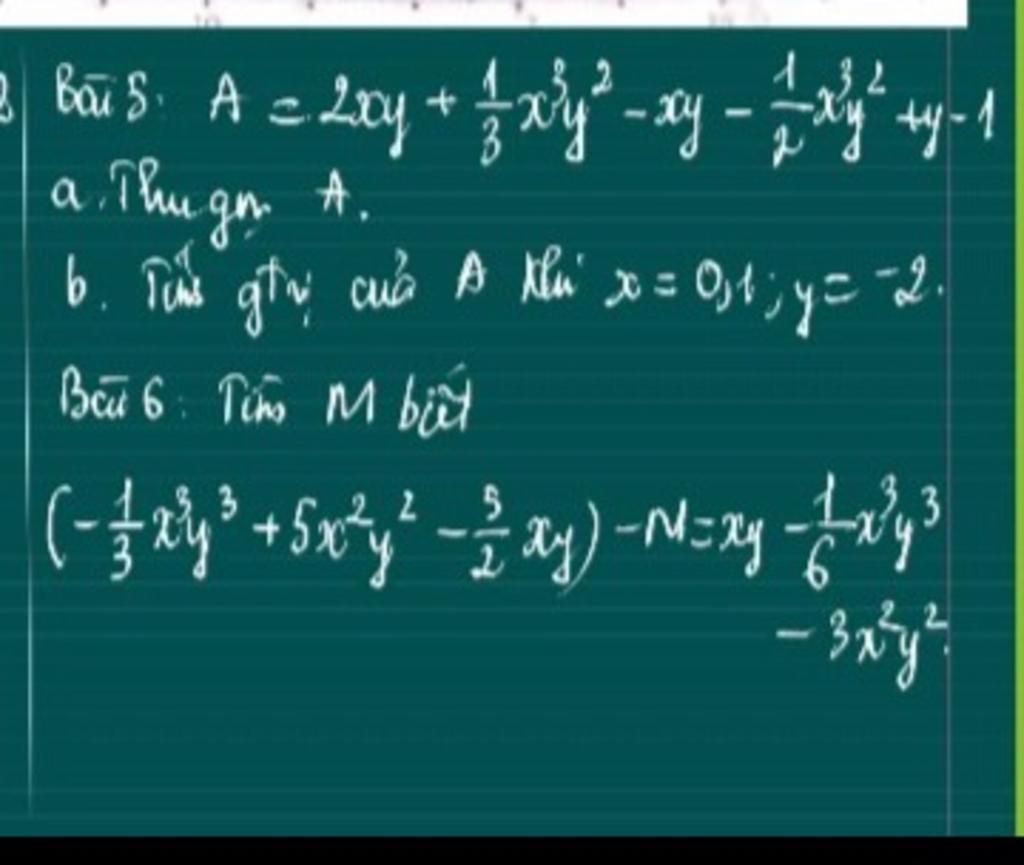 Bài 5: A = 2xy + 1/3 x³y² - xy - 1/2 x³y² + y - 1
a. Thu gọn A.
b. Tính gtrị của A khi x = 0,1; y = -2.
Bài 6: Tìm M biết
(-1/3 x³y³ + 5x²y² - 5/2 xy) - M = xy - 1/6 x³y³
- 3x²y².